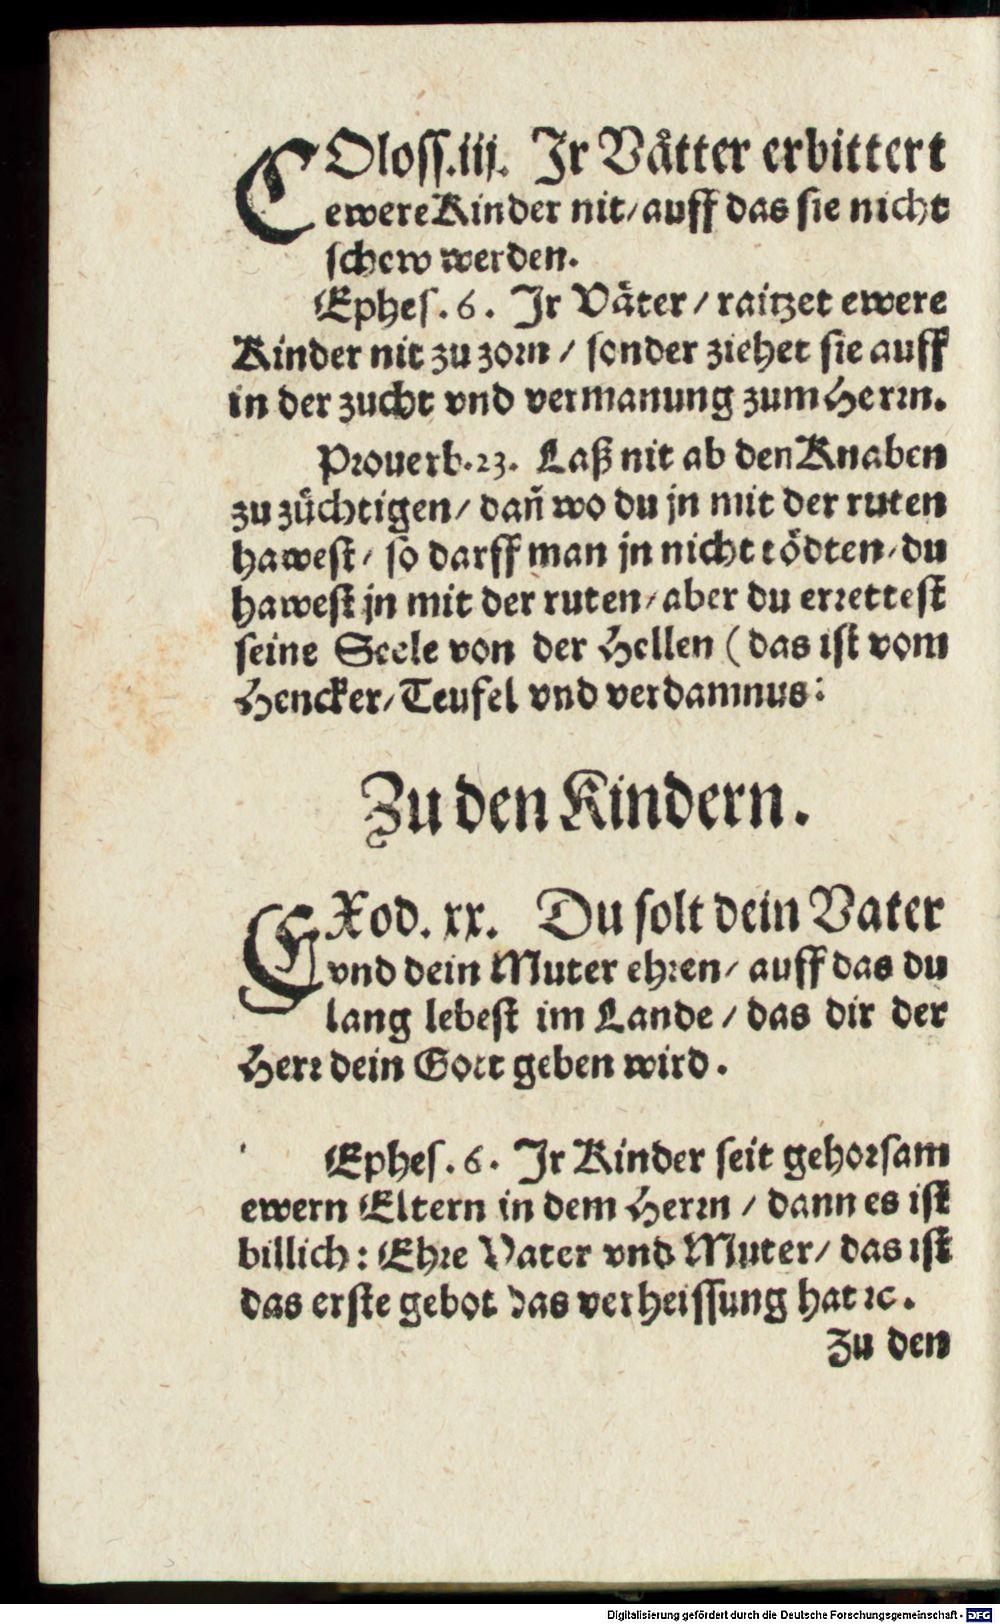 COloss.iij. Jr Vätter erbittert
ewere Kinder nit/ auff das sie nicht
schew werden.
Ephes. 6. Jr Väter / raitzet ewere
Kinder nit zu zorn / sonder ziehet sie auff
in der zucht vnd vermanung zum Herrn.
Prouerb. 23. Laß nit ab den Knaben
zu züchtigen/ dañ wo du jn mit der ruten
hawest/ so darff man jn nicht tödten/ du
hawest jn mit der ruten/ aber du errettest
seine Seele von der Hellen ( das ist vom
Hencker/ Teufel vnd verdamnus:
Zu den Kindern.
EXod. xx. Du solt dein Vater
vnd dein Muter ehren/ auff das du
lang lebest im Lande / das dir der
Herr dein Gott geben wird.
Ephes. 6. Jr Kinder seit gehorsam
ewern Eltern in dem Herrn / dann es ist
billich: Ehre Vater vnd Muter/ das ist
das erste gebot das verheissung hat ꝛc.
Zu den
Digitalisierung gefördert durch die Deutsche Forschungsgemeinschaft - DFG